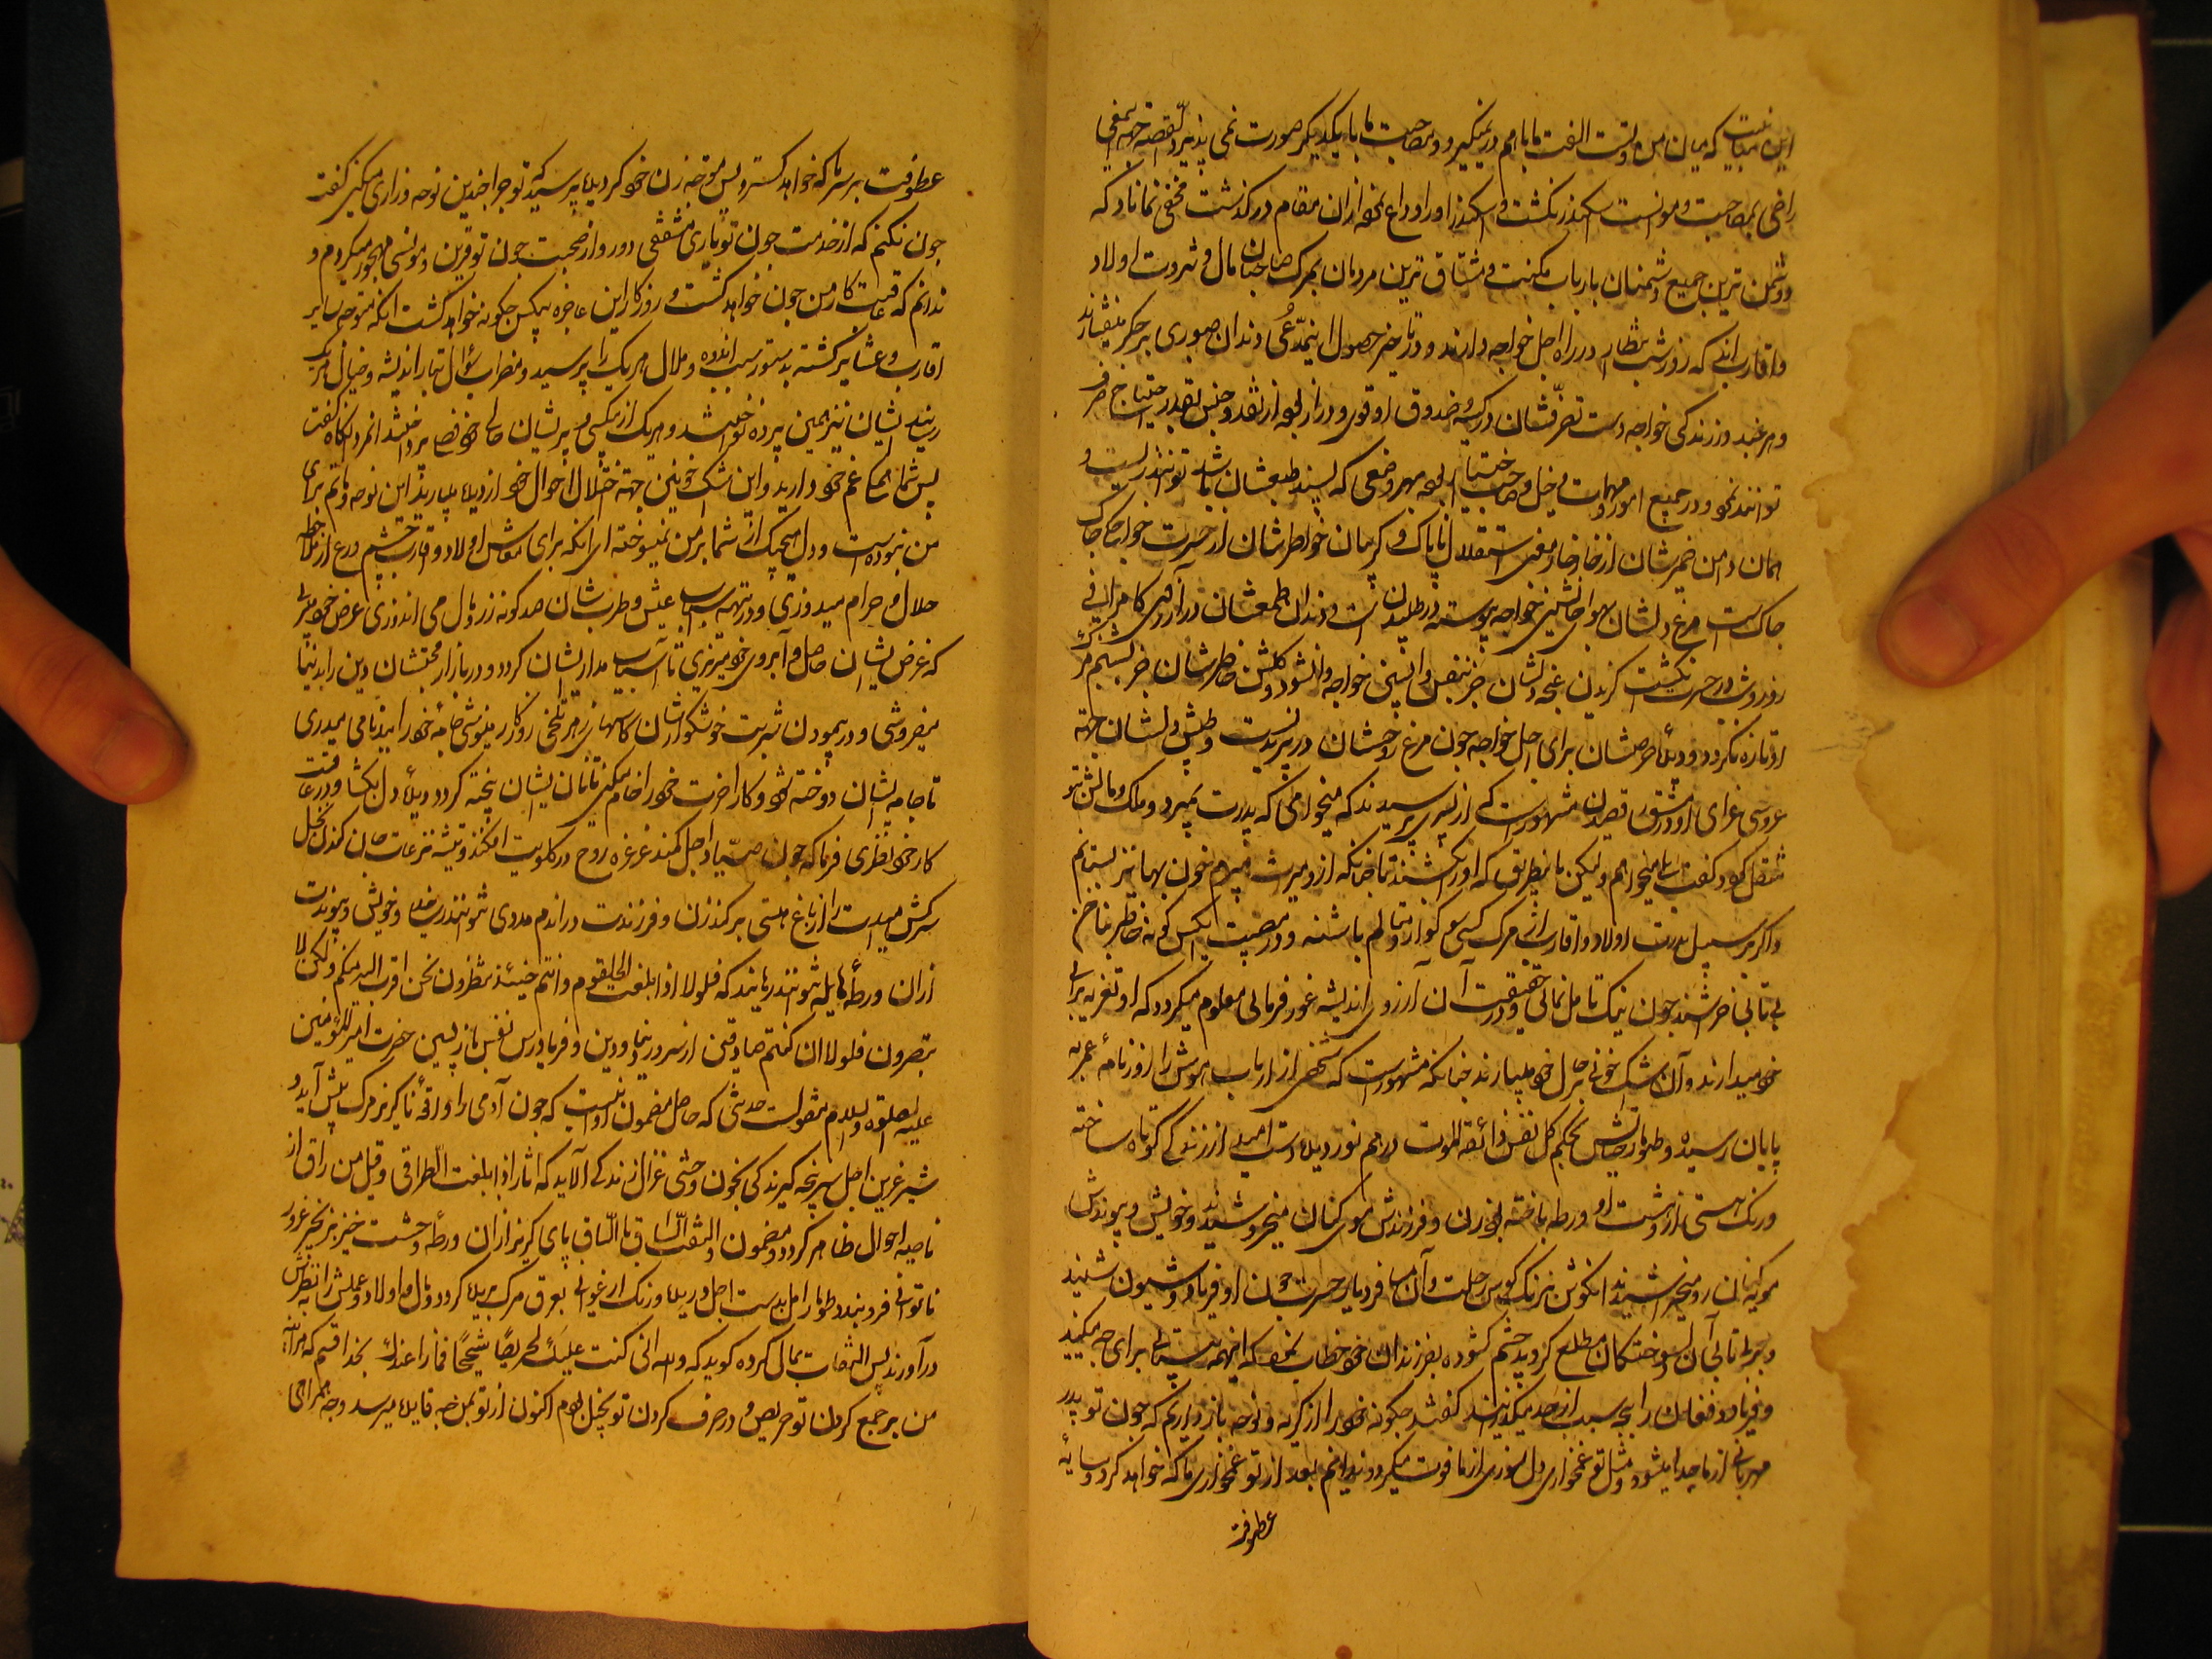 این مباینت که میان من و تست الفت ما باهم در نمیگیرد و مصاحبت ما با یکدیگر صورت نمی پذیرد القصه
راضی بمصاحبت و موانست اسکندر نگشت و اسکندر او را وداع نموده از ان مقام در گذشت مخفی نماناد که
دشمن ترین جمیع دشمنان بارباب مکنت و مشتاق ترین مردمان بمرگ صاحبان مال و ثروت اولاد
و اقارب اند که روز و شب انتظار در راه اجل خواجه دارند و در تاخیر حصول این مدعی دندان صبوری بر جگر میفشارند
و هر چند در زندگی خواجه دست تصرفشان در کیسه و صندوق او قوی و دراز بوده از نقد و جنس بقدر احتیاج صرف
توانند نمود و در جمیع امور و مهمات دخیل و صاحب اختیار بوده بهر وضعی که پسند طبعشان باشد توانند زیست
همان دامن ضمیرشان از خار خار معنی استقلال ناپاک و گریبان خواطرشان از حسرت خواجگی چاک
چاک است مرغ دلشان بهوای جانشینی خواجه پیوسته در طپیدن است و دندان طمعشان در آرزوی کامرانی
روز و شب در حسرت انگشت گزیدن غنچه دلشان جز بنفس واپسین خواجه وا نشود و گلشن خاطرشان جز بنسیم مرگ
او تازه نگردد و دیده حرصشان برای اجل خواجه چون مرغ روحشان در پریدنست و طپش دلشان جهة
عروسی عزای او در مشق رقصیدن مشهور است که از پسری پرسیدند که میخواهی که پدرت بمیرد و ملک و مالش بتو
منتقل شود گفت بلی میخواهم ولیکن باینطریق که او را بکشند تا چنانکه از و میراث میبرم خون بها نیز بستانم
و اگر بر سبیل ندرت اولاد و اقارب از مرگ کسی سوگوار و متالم باشند و در مصیبت آنکس گونه خاطر بناخن
بی تابی خراشند چون نیک تامل نمائی و در حقیقت آن از روی اندیشه غور فرمائی معلوم میگردد که او تعزیه برای
خود میدارند و آن اشک خونی بر حال خود میبارند چنانکه مشهور است که شخصی از ارباب هوش را روزنامه عمر به
پایان رسیده و طومار حیاتش بحکم کل نفس ذائقة الموت در هم نوردیده دست امید از زندگی کوتاه ساخته
و رنگ هستی از دهشت او ورطه باخته بود زن و فرزندش موی کنان میخروشیدند و خویش و پیوندش
مویه کنان رو میخراشیدند آنکوش بزنگ کوس رحلت و آن مسافر دیار حسرت چون او فریاد و شیون شنید
و بر بیتابی آن دلسوختگان مطلع گردید چشم گشوده بفرزندان خود خطاب نمود که اینهمه بیتابی برای چه میکنید
و فریاد و فغان را بچه سبب از حد میگذرانید گفتند چگونه خود را از گریه و نوحه باز داریم که چون تو پدر
مهربانی از ما جدا میشود و مثل تو غمخواری دلسوزی از ما فوت میگردد ندانیم بعد از تو غمخواری ما که خواهد کرد و سایه
عطوفت
عطوفت بر سر ما که خواهد گسترد پس متوجه زن خود گردیده پرسید که تو چرا چندین نوحه و زاری میکنی گفت
چون نکنم که از خدمت چون تو یاری مشفقی دور و از صحبت چون تو قرین و مونسی مهجور میگردم و
ندانم که عاقبت کار من چون خواهد گشت و روزگار این عاجزه بیکس چگونه خواهد گذشت آنگه متوجه سایر
اقارب و عشایر گشته بدستور سبب اندوه و ملال هر یک را پرسید و مضراب سؤال بتار اندیشه و خیال هر یک
رسانید ایشان نیز همین پرده نواختند و هر یک از بیکسی و پریشان حالی خود قصه پرداختند آنمرد آگاه گفت
پس شما همگی غم خود دارید و این اشک خونین جهة اختلال احوال خود از دیده میبارید این نوحه و ماتم برای
من نبوده است و دل هیچیک از شما بر من نمیسوخته ای آنکه برای معاش اولاد و اقارب چشم ورع از ملاحظه
حلال و حرام میدوزی و در تهیه اسباب عیش و طربشان صد گونه زر و مال می اندوزی عرض خود میبری
که غرض ایشان حاصل و آبروی خود میریزی تا آسیاب مدار ایشان گردد و در بازار محبتشان دین را بدنیا
میفروشی و در پیمودن شربت خوشگوارشان کاسهای زهر تلخی روزگار مینوشی جامه خود را بیدنامی میدری
تا جامه ایشان دوخته شود و کار آخرت خود را خام میکنی تا نان ایشان پخته گردد دیده دل بگشا و در عاقبت
کار خود نظری فرما که چون صیاد اجل کمند غرغره روح در گلویت افکند و تیشه نزعات جان کندن نخل
سرکش امیدت را از باغ هستی بر کند زن و فرزندت در اندم مددی نتوانند رسانید و خویش و پیوندت
از ان ورطه هایله نتوانند رهانید که فلولا اذا بلغت الحلقوم و انتم حینئذ تنظرون و نحن اقرب الیه منکم ولکن لا
تبصرون فلولا ان کنتم صادقین از سرور دنیا و دین و فریادرس نفس بازپسین حضرت امیر المؤمنین
علیه الصلوة والسلام منقولست حدیثی که حاصل مضمون او اینست که چون آدمی را واقعه ناگزیر مرگ پیش آید و
شیر عرین اجل سر پنجه گیرندگی بخون وحشی غزال زندگی آلاید که آثار اذا بلغت التراقی و قیل من راق از
ناصیه احوال ظاهر گردد و مضمون و التفت الساق بالساق پای گریز از ان ورطه وحشت خیز بزنجیر غرور
ناتوانی فرو بندد طومار امل بدست اجل دریده و رنگ ارغوانی بعرق مرگ پریده گردد و مال و اولاد و عملش را بنظرش
درآورند پس التفات بمال کرده گوید که والله انی کنت علیک لحریصا شحیحا فماذا عندک بخدا قسم که
من بر جمع کردن تو حریص و در صرف کردن تو بخیل بودم اکنون از تو بمن چه فایده میرسد و چه همراهی